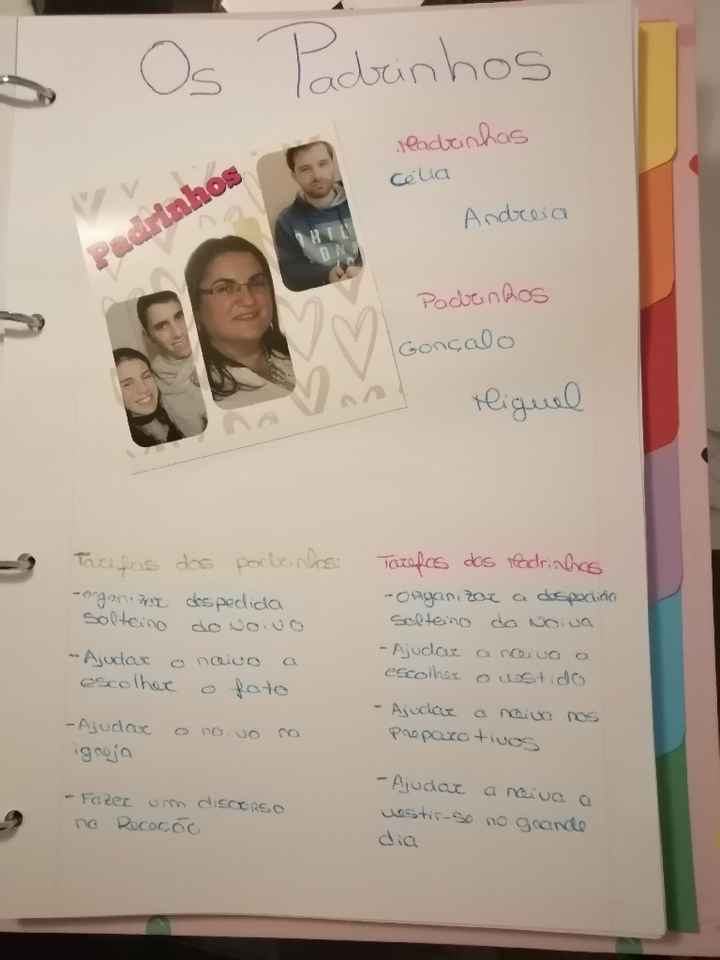 Os Padrinhos
Padrinhos
Madrinhas
Célia
Andreia
Padrinhos
Gonçalo
Miguel
Tarefas dos padrinhos:
-Organizar despedida
solteiro do noivo
-Ajudar o noivo a
escolher o fato
-Ajudar o noivo na
igreja
-Fazer um discurso
na
Tarefas das Madrinhas
-Organizar a despedida
solteiro da Noiva
-Ajudar a noiva a
escolher o vestido
- Ajudar a noiva nos
preparativos
-Ajudar a noiva a
vestir-se no grande
dia